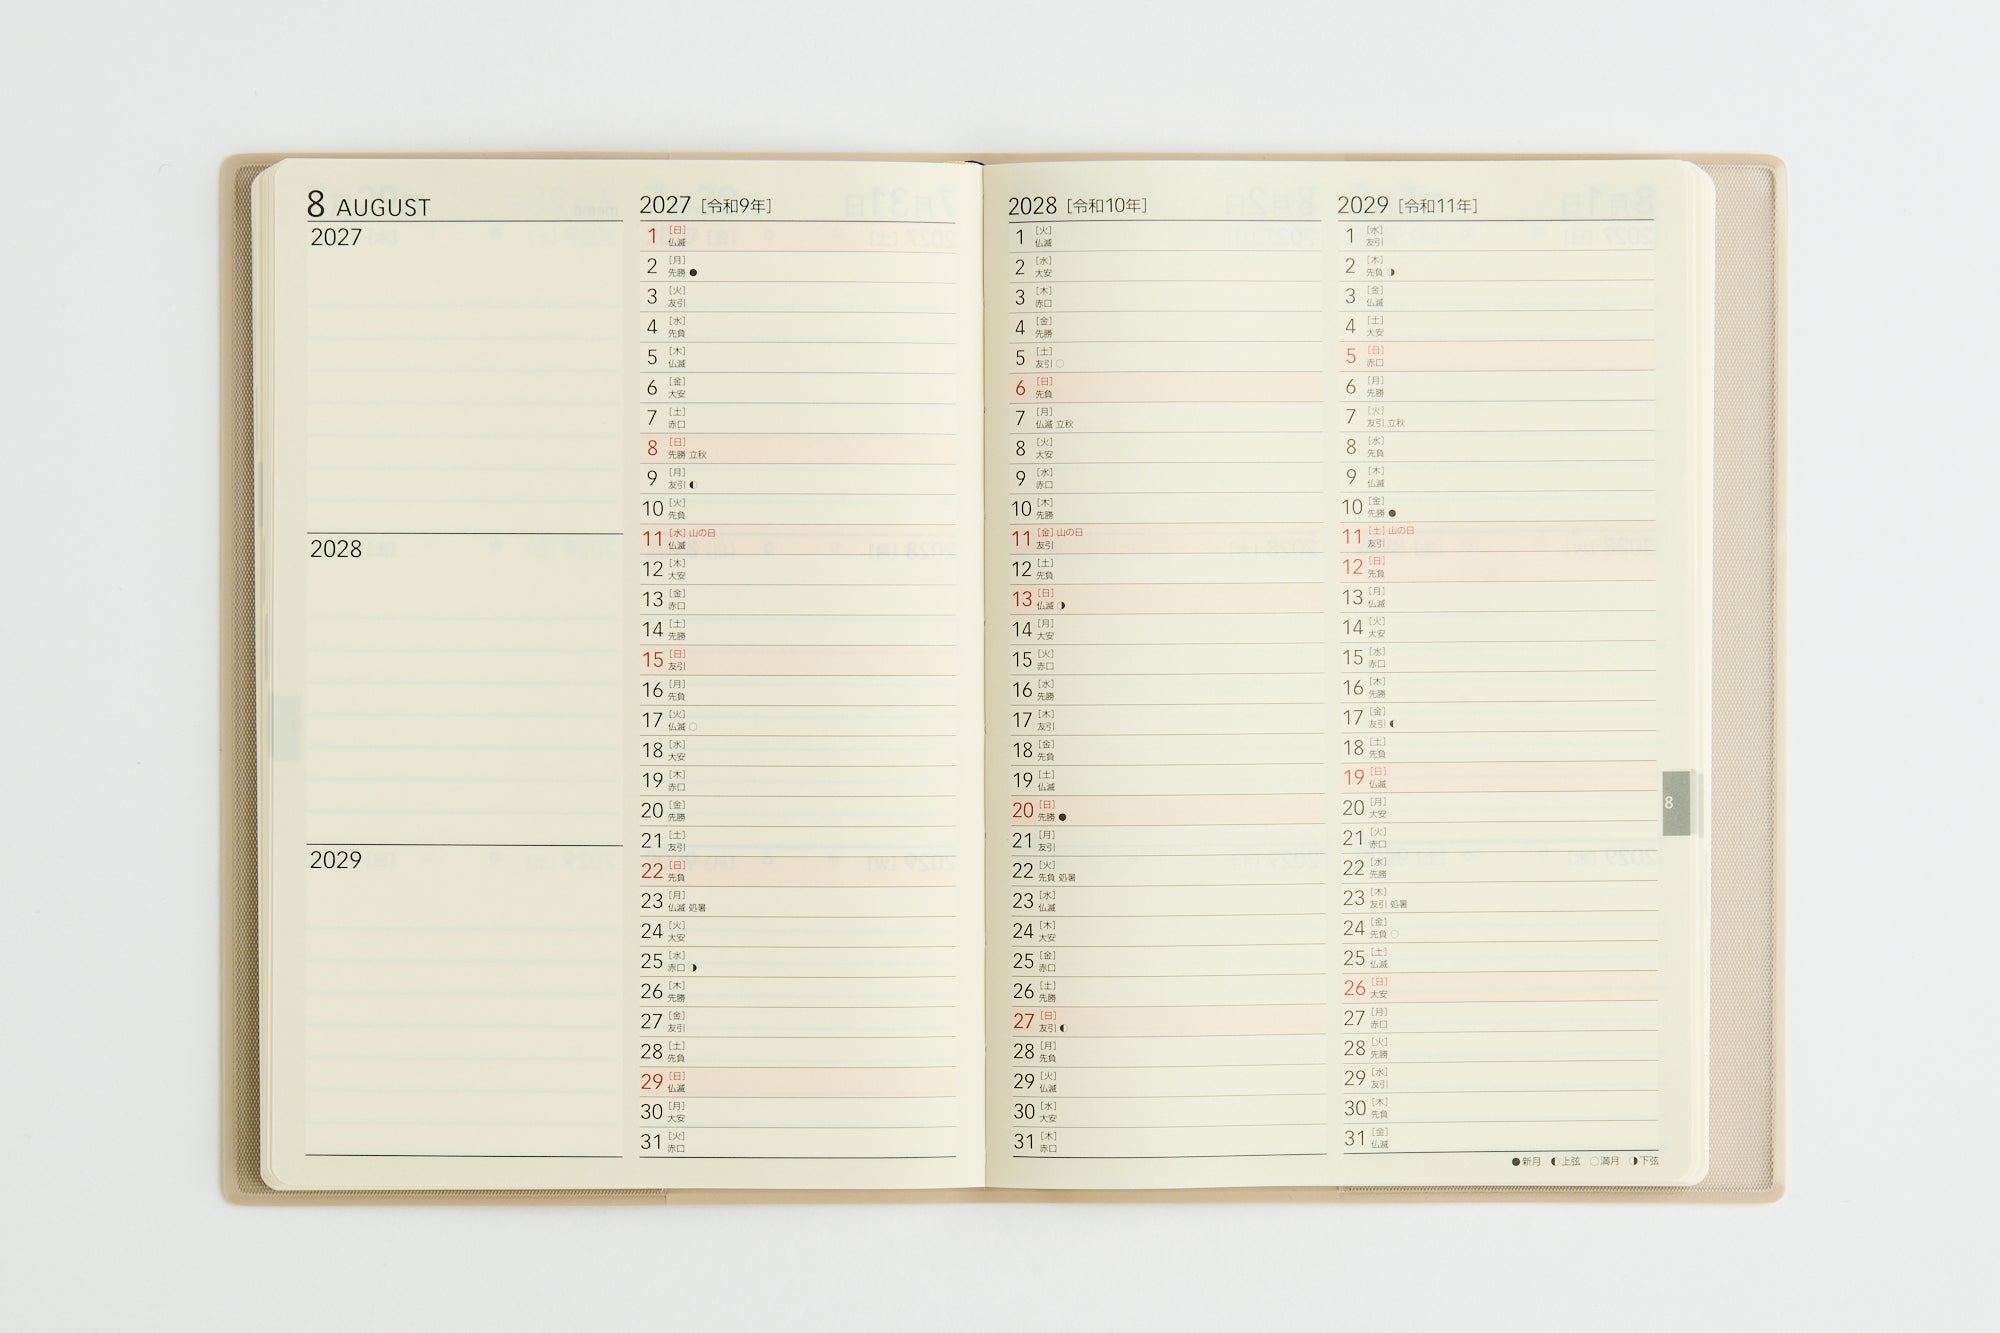 8 AUGUST
2027
2028
2029
2027 [令和9年]
1 [日]
仏滅
2 [月]
先勝 ●
3 [火]
友引
4 [水]
先負
5 [木]
仏滅
6 [金]
大安
7 [土]
赤口
8 [日]
先勝 立秋
9 [月]
友引 ◐
10 [火]
先負
11 [水] 山の日
仏滅
12 [木]
大安
13 [金]
赤口
14 [土]
先勝
15 [日]
友引
16 [月]
先負
17 [火]
仏滅 ○
18 [水]
大安
19 [木]
赤口
20 [金]
先勝
21 [土]
友引
22 [日]
先負
23 [月]
仏滅 処暑
24 [火]
大安
25 [水]
赤口 ◑
26 [木]
先勝
27 [金]
友引
28 [土]
先負
29 [日]
仏滅
30 [月]
大安
31 [火]
赤口
2028 [令和10年]
1 [火]
仏滅
2 [水]
大安
3 [木]
赤口
4 [金]
先勝
5 [土]
友引 ○
6 [日]
先負
7 [月]
仏滅 立秋
8 [火]
大安
9 [水]
赤口
10 [木]
先勝
11 [金] 山の日
友引
12 [土]
先負
13 [日]
仏滅 ◑
14 [月]
大安
15 [火]
赤口
16 [水]
先勝
17 [木]
友引
18 [金]
先負
19 [土]
仏滅
20 [日]
先勝 ●
21 [月]
友引
22 [火]
先負 処暑
23 [水]
仏滅
24 [木]
大安
25 [金]
赤口
26 [土]
先勝
27 [日]
友引 ◐
28 [月]
先負
29 [火]
仏滅
30 [水]
大安
31 [木]
赤口
2029 [令和11年]
1 [水]
友引
2 [木]
先負 ◑
3 [金]
仏滅
4 [土]
大安
5 [日]
赤口
6 [月]
先勝
7 [火]
友引 立秋
8 [水]
先負
9 [木]
仏滅
10 [金]
先勝 ●
11 [土] 山の日
友引
12 [日]
先負
13 [月]
仏滅
14 [火]
大安
15 [水]
赤口
16 [木]
先勝
17 [金]
友引 ◐
18 [土]
先負
19 [日]
仏滅
20 [月]
大安
21 [火]
赤口
22 [水]
先勝
23 [木]
友引 処暑
24 [金]
先負 ○
25 [土]
仏滅
26 [日]
大安
27 [月]
赤口
28 [火]
先勝
29 [水]
友引
30 [木]
先負
31 [金]
仏滅
●新月 ◐上弦 ○満月 ◑下弦
8